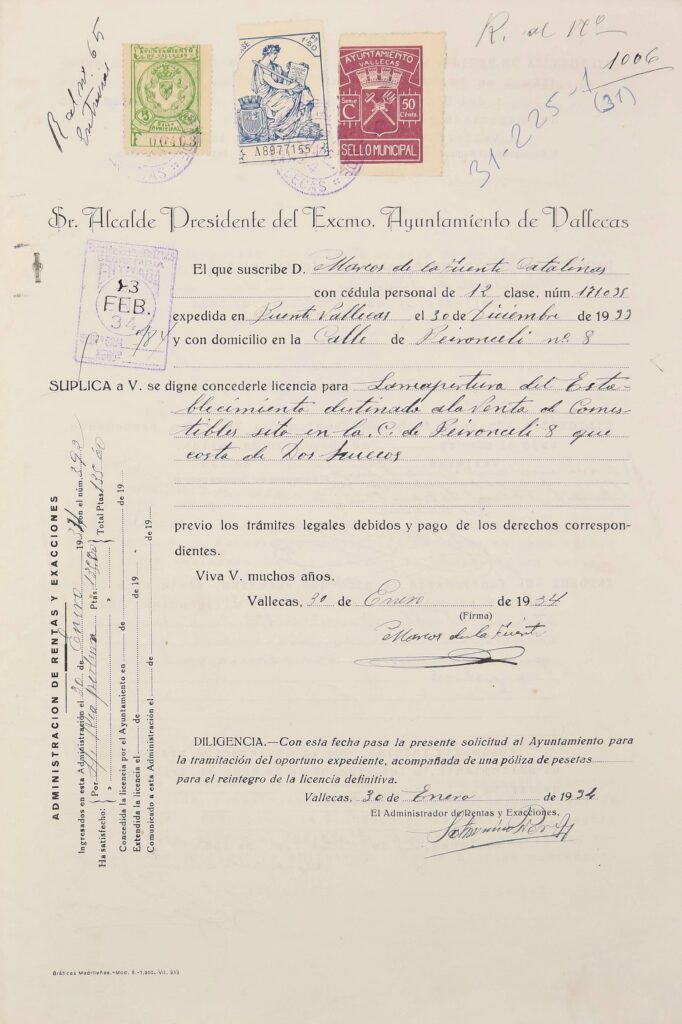 R. al nº 65
Entradas
R. al Nº
1006
31-225-1
(31)
AYUNTAMIENTO
DE VALLECAS
SELLO
MUNICIPAL
1'50
A8977155
AYUNTAMIENTO
VALLECAS
Serie
C
50
Cénts.
SELLO MUNICIPAL
VALLECAS
Sr. Alcalde Presidente del Excmo. Ayuntamiento de Vallecas
ENTRADA
13
FEB.
34
El que suscribe D. Marcos de la Fuente Catalinas
con cédula personal de 12 clase, núm. 171035
expedida en Puente Vallecas el 30 de Diciembre de 1933
y con domicilio en la Calle de Peironceli nº 8
SUPLICA a V. se digne concederle licencia para La apertura del Esta-
blecimiento destinado a la Venta de Comes-
tibles sito en la C. de Peironceli 8 que
costa de Dos huecos
previo los trámites legales debidos y pago de los derechos correspon-
dientes.
Viva V. muchos años.
Vallecas, 30 de Enero de 1934
(Firma)
Marcos de la Fuente
DILIGENCIA.—Con esta fecha pasa la presente solicitud al Ayuntamiento para
la tramitación del oportuno expediente, acompañada de una póliza de pesetas
para el reintegro de la licencia definitiva.
Vallecas, 30 de Enero de 1934
El Administrador de Rentas y Exacciones,
ADMINISTRACION DE RENTAS Y EXACCIONES
Ingresados en esta Administración el 30 de Enero 1934 con el núm. 392
Ha satisfecho: Por apertura Ptas. Total Ptas.
Concedida la licencia por el Ayuntamiento en de de 19
Extendida la licencia el de de 19
Comunicado a esta Administración el de de 19
Gráficas Madrileñas.-Mod. 6.-1.000.-VII. 933